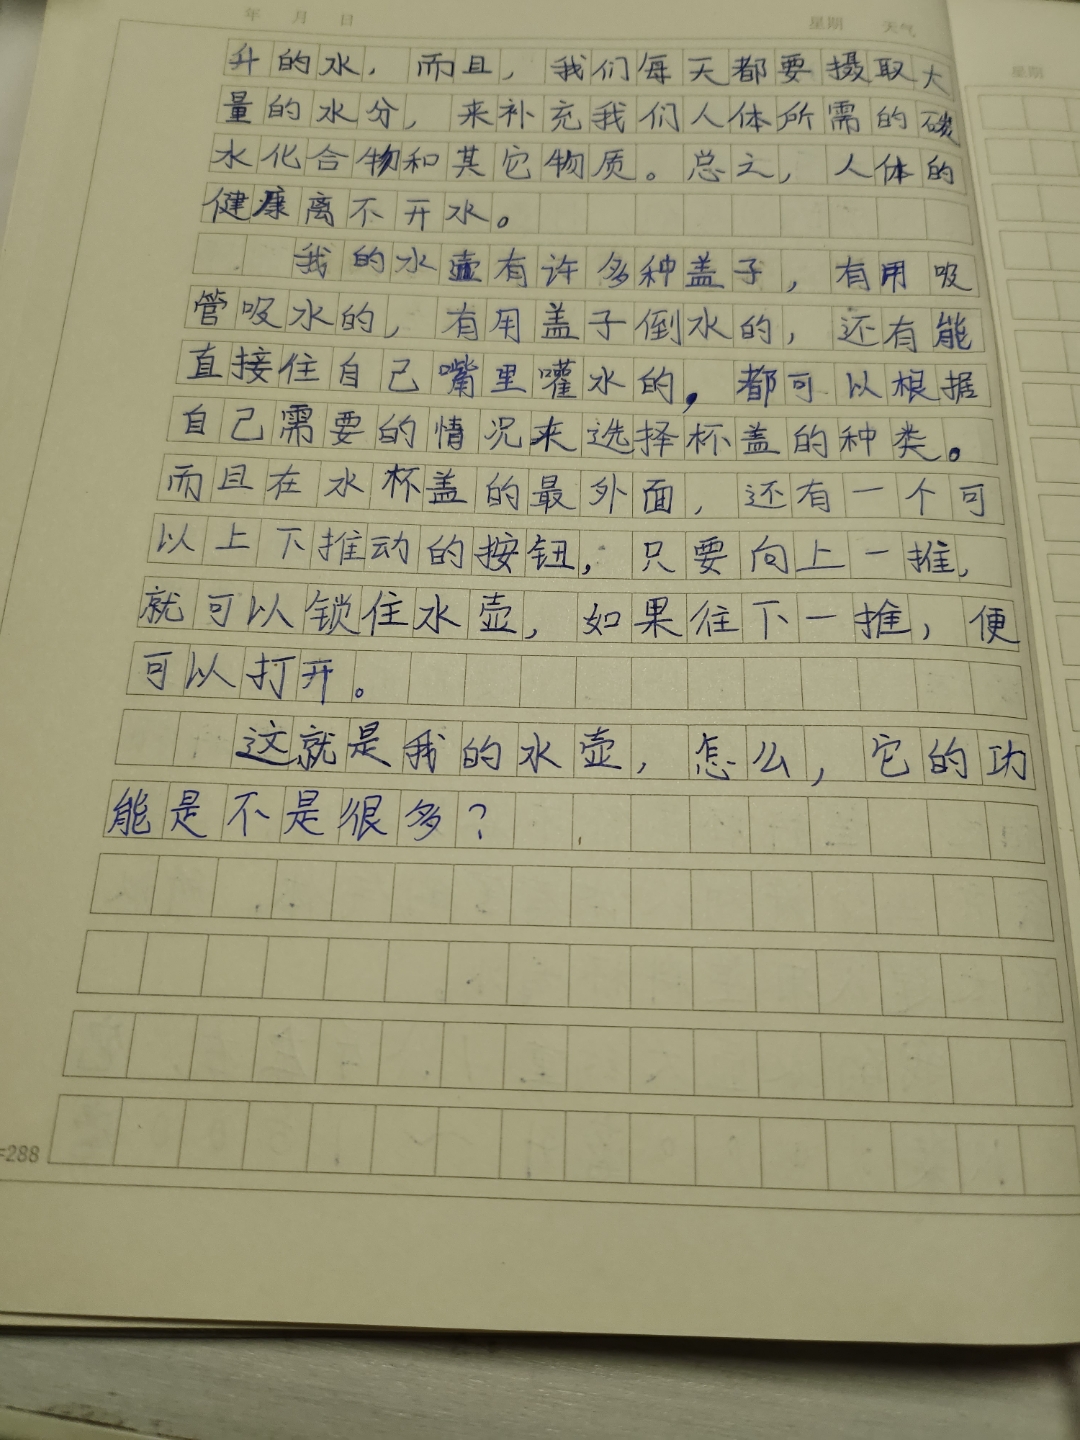 年 月 日 星期 天气
星期
升的水，而且，我们每天都要摄取大
量的水分，来补充我们人体所需的碳
水化合物和其它物质。总之，人体的
健康离不开水。
我的水壶有许多种盖子，有用吸
管吸水的，有用盖子倒水的，还有能
直接住自己嘴里嚾水的，都可以根据
自己需要的情况来选择杯盖的种类。
而且在水杯盖的最外面，还有一个可
以上下推动的按钮，只要向上一推，
就可以锁住水壶，如果往下一推，便
可以打开。
这就是我的水壶，怎么，它的功
能是不是很多？
=288